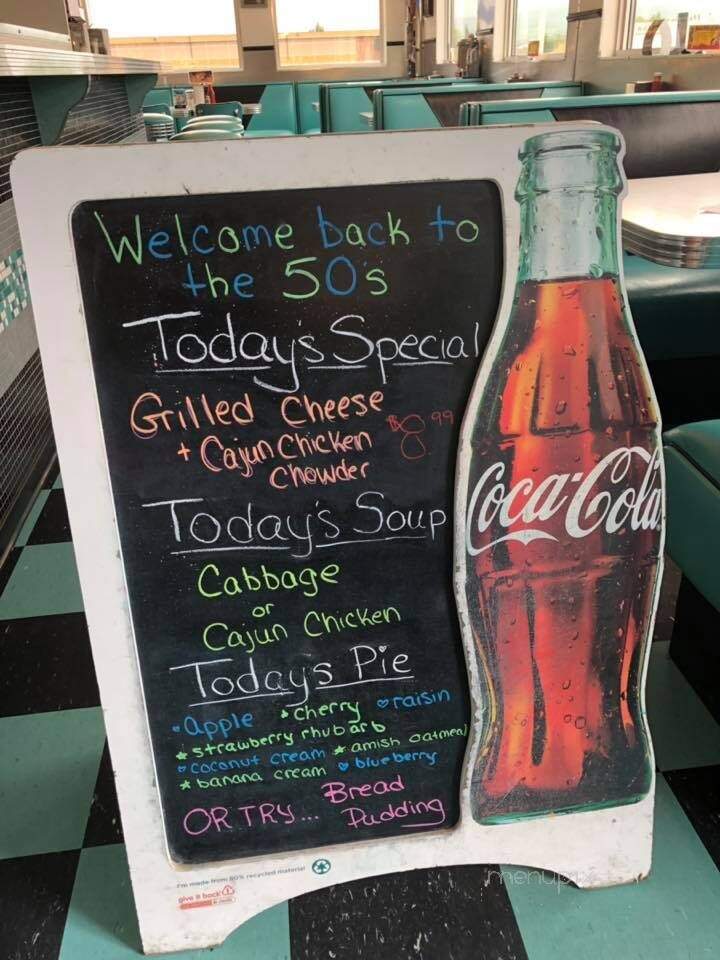 Welcome back to
the 50's
Today's Special
Grilled Cheese
+ Cajun Chicken
Chowder
$8.99
Today's Soup
Cabbage
or
Cajun Chicken
Today's Pie
•apple •cherry ♡raisin
*strawberry rhubarb
♡coconut cream *amish oatmeal
*banana cream ♡blueberry
OR TRY... Bread
Pudding
Coca-Cola
I'm made from 80% recycled material
give it back
menupix